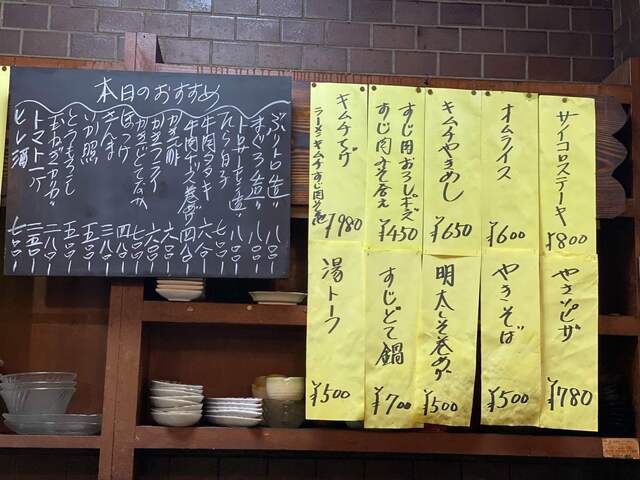 本日のおすすめ
ぶりトロ造り 八〇〇
まぐろ造り 八〇〇
トロサーモン造り 八〇〇
たら白子 七〇〇
牛肉タタキ 六八〇
牛肉チーズ巻あげ 四八〇
かき酢 六八〇
かきフライ 六八〇
かきどてなべ 七八〇
ほっけ
さんま 三八〇
いか照 五〇〇
とうもろこし 五〇〇
玉ねぎ 二八〇
トマト 三五〇
ヒレ酒 七〇〇
サイコロステーキ
¥800
オムライス
¥600
キムチやきめし
¥650
すじ肉おろしポン
すじ肉みそ合え
¥450
キムチチゲ
ラーメン キムチ すじ肉
¥980
やきピザ
¥780
やきそば
¥500
明太しそ巻あげ
¥500
すじどて鍋
¥700
湯トーフ
¥500